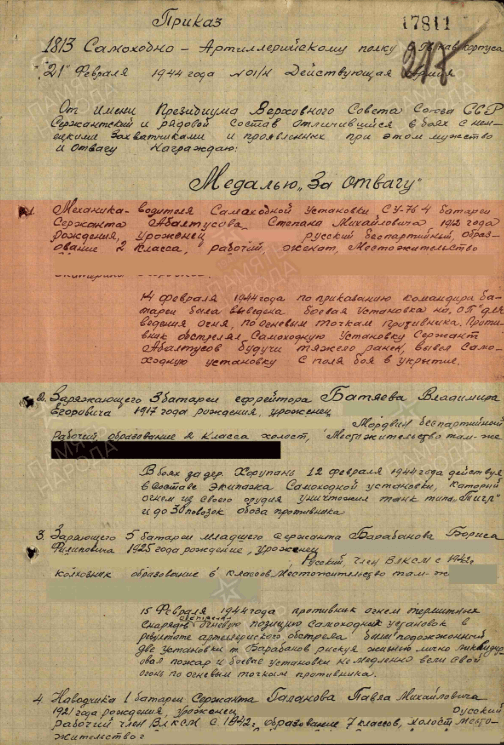 Приказ
17811
1813 Самоходно - Артиллерийскому полку
"21" Февраля 1944 года № 01/Н Действующая Армия
От имени Президиума Верховного Совета Союза ССР
Сержантский и рядовой состав отличившийся в боях с
немецкими захватчиками и проявленных при этом мужество
и Отвагу Награждаю:
Медалью "За Отвагу"
1. Механика-водителя Самоходной Установки СУ-76 4 батареи
Сержанта Абалтусова Степана Михайловича 1912 года
рождения, уроженец русский беспартийный, образ-
ование 2 класса, рабочий, женат, Местожительство
14 февраля 1944 года по приказанию командира ба-
тареи была выведена боевая установка на ОП для
ведения огня, по огневым точкам противника. Проти-
вник обстрелял Самоходную Установку Сержант
Абалтусов будучи тяжело ранен, вывел Само-
ходную установку с поля боя в укрытие.
2. Заряжающего 3 батареи ефрейтора Батяева Владимира
Егоровича 1917 года рождения, уроженец
Мордвин беспартийный
рабочий, образование 2 класса холост, Местожительство там-же
В боях за дер. 12 февраля 1944 года действуя
в составе экипажа Самоходной установки, который
огнем из своего орудия уничтожил танк типа "Тигр"
и до 30 повозок обоза противника.
3. Заряющего 5 батареи младшего сержанта Барабанова Бориса
Филиповича 1925 года рождение, уроженец
Русский, член ВЛКСМ с
колхозник образование 6 классов, Местожительство там-же
15 Февраля 1944 года противник огнем термитных
снарядов огневую позицию самоходных установок в
результате артиллерийского обстрела были подожженны
две установки т. Барабанов рискуя жизнью лично ликвидир
овал пожар и боевые установки немедленно вели свой
огонь по огневым точкам противника.
4. Наводчика 1 батареи Сержанта Галанова Павла Михайловича
1921 года рождения, уроженец Русский
рабочий член ВЛКСМ с 1942г, образование 7 классов, холост место-
жительство: